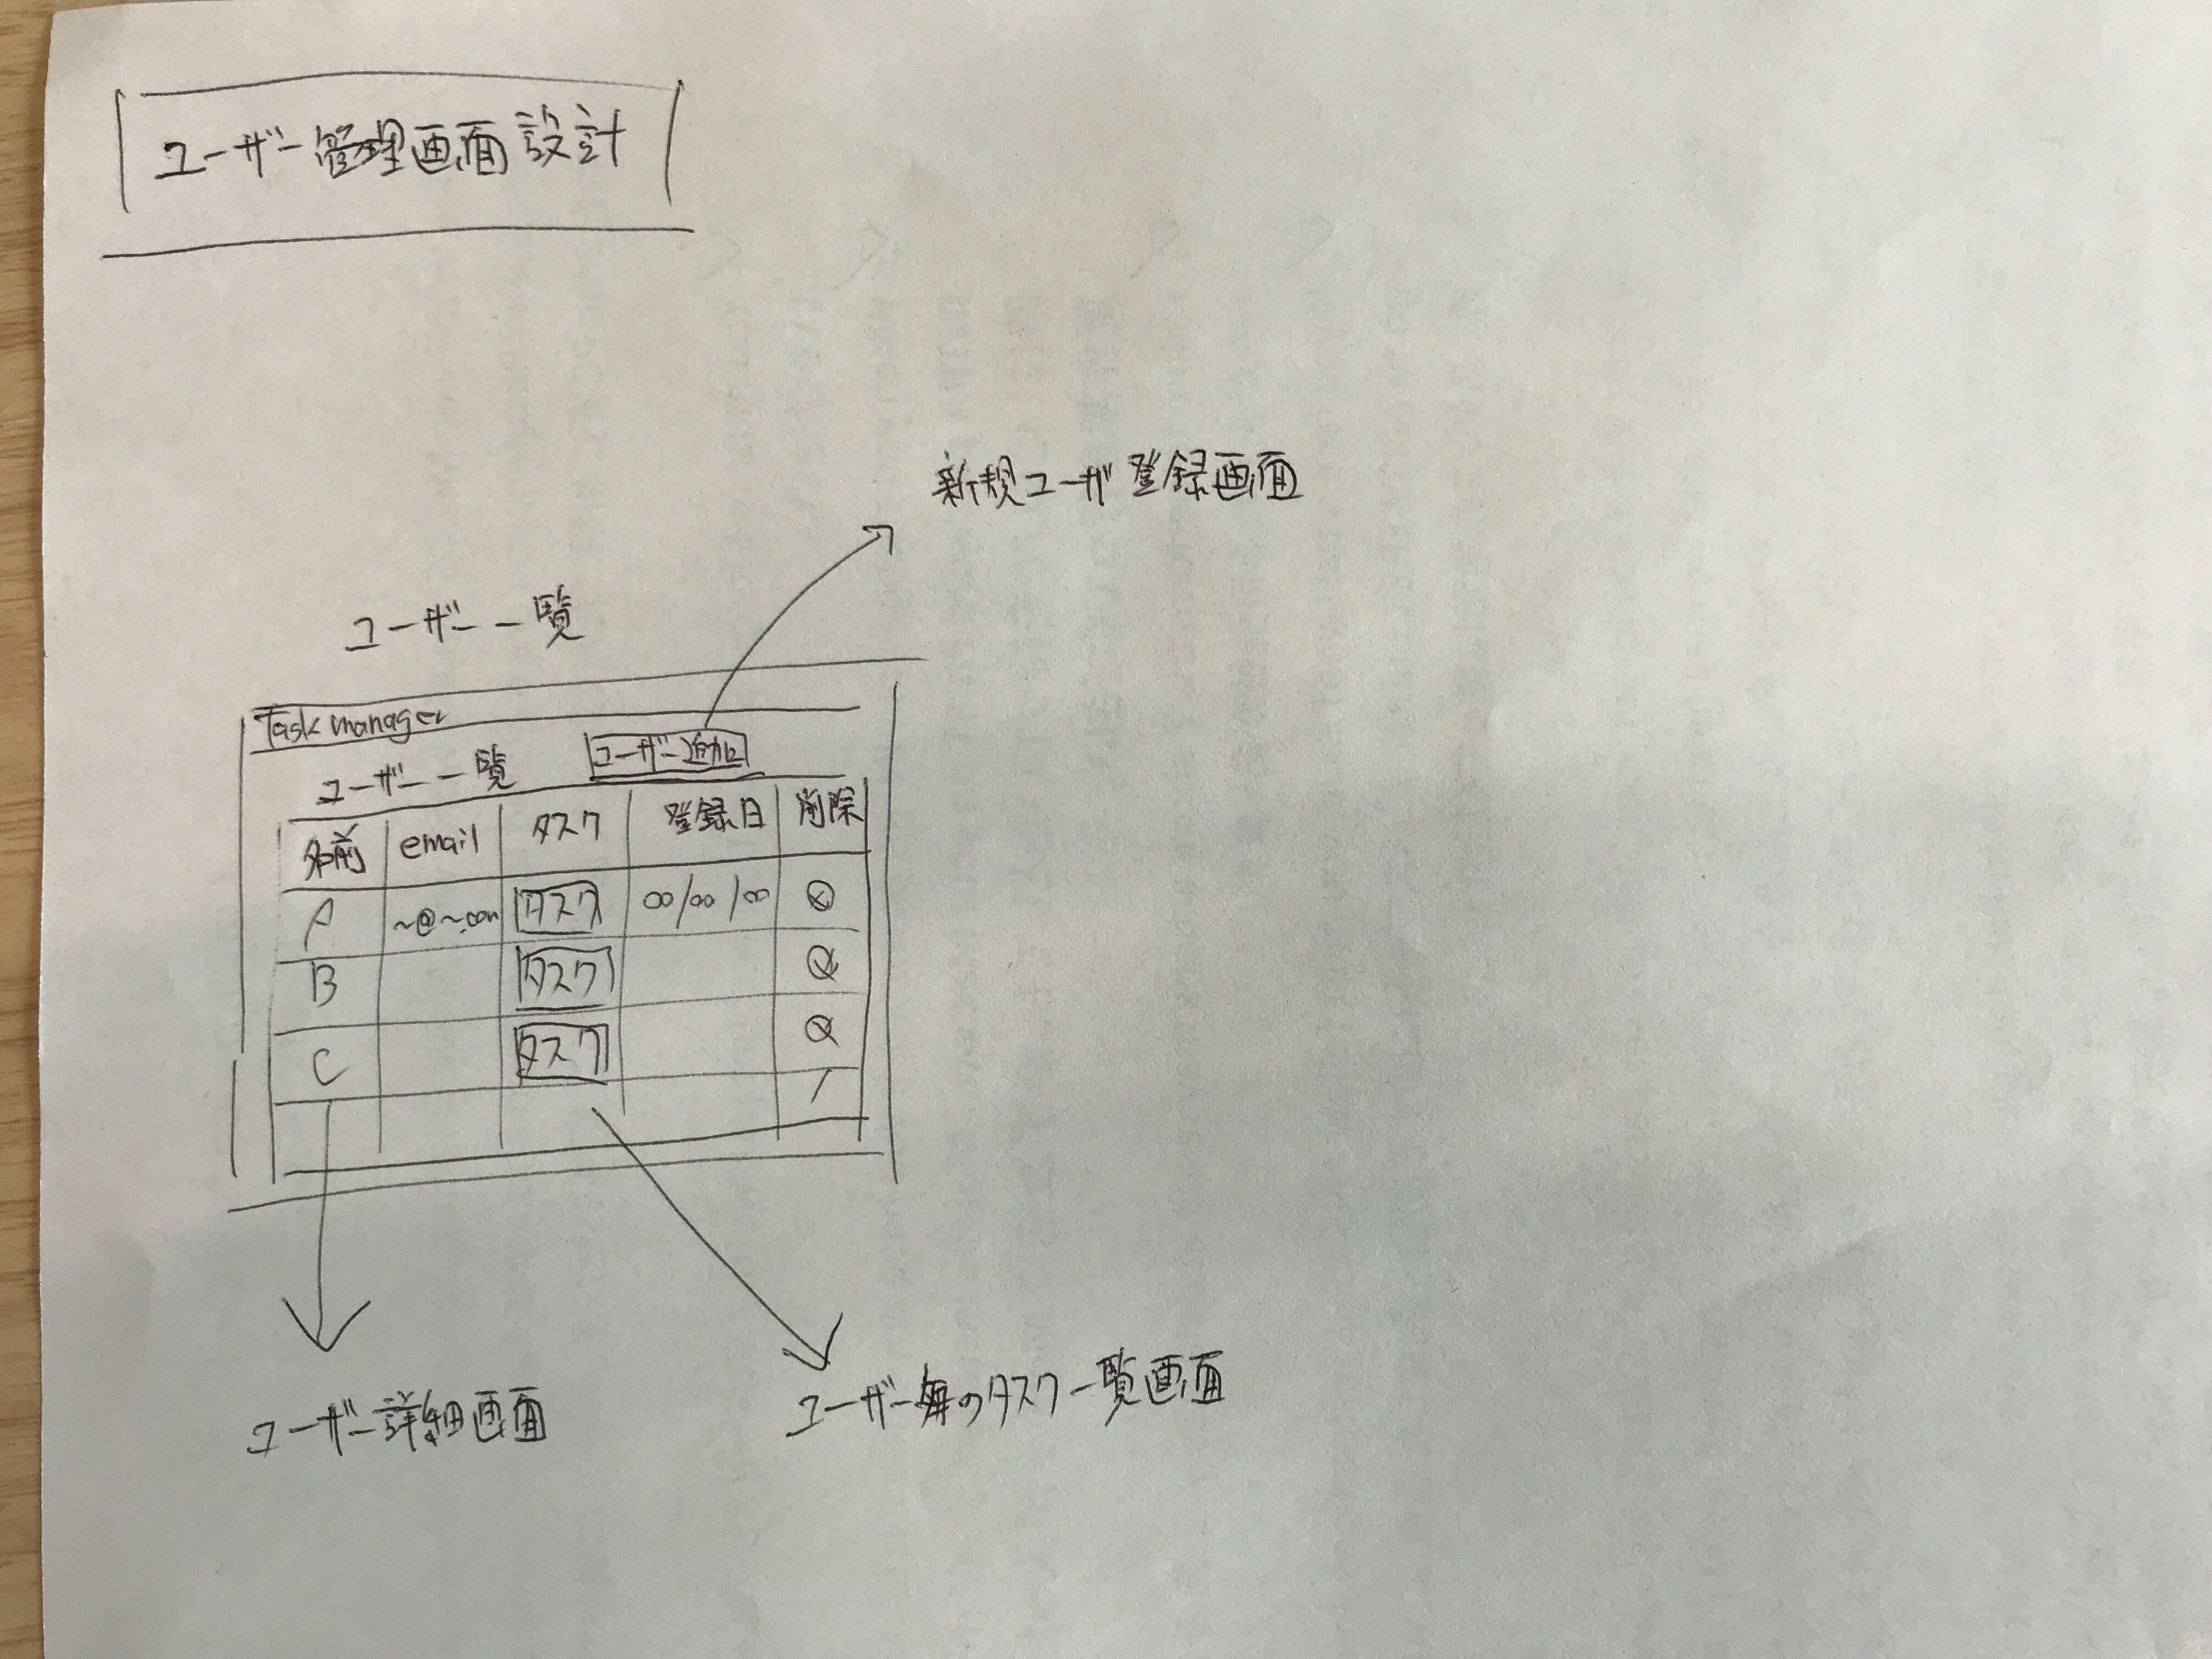 ユーザー管理画面設計
新規ユーザ登録画面
ユーザー一覧
Task manager
ユーザー一覧 ユーザー追加
名前 email タスク 登録日 削除
A ~@~.com タスク ∞/∞/∞
B タスク
C タスク
ユーザー詳細画面
ユーザー毎のタスク一覧画面